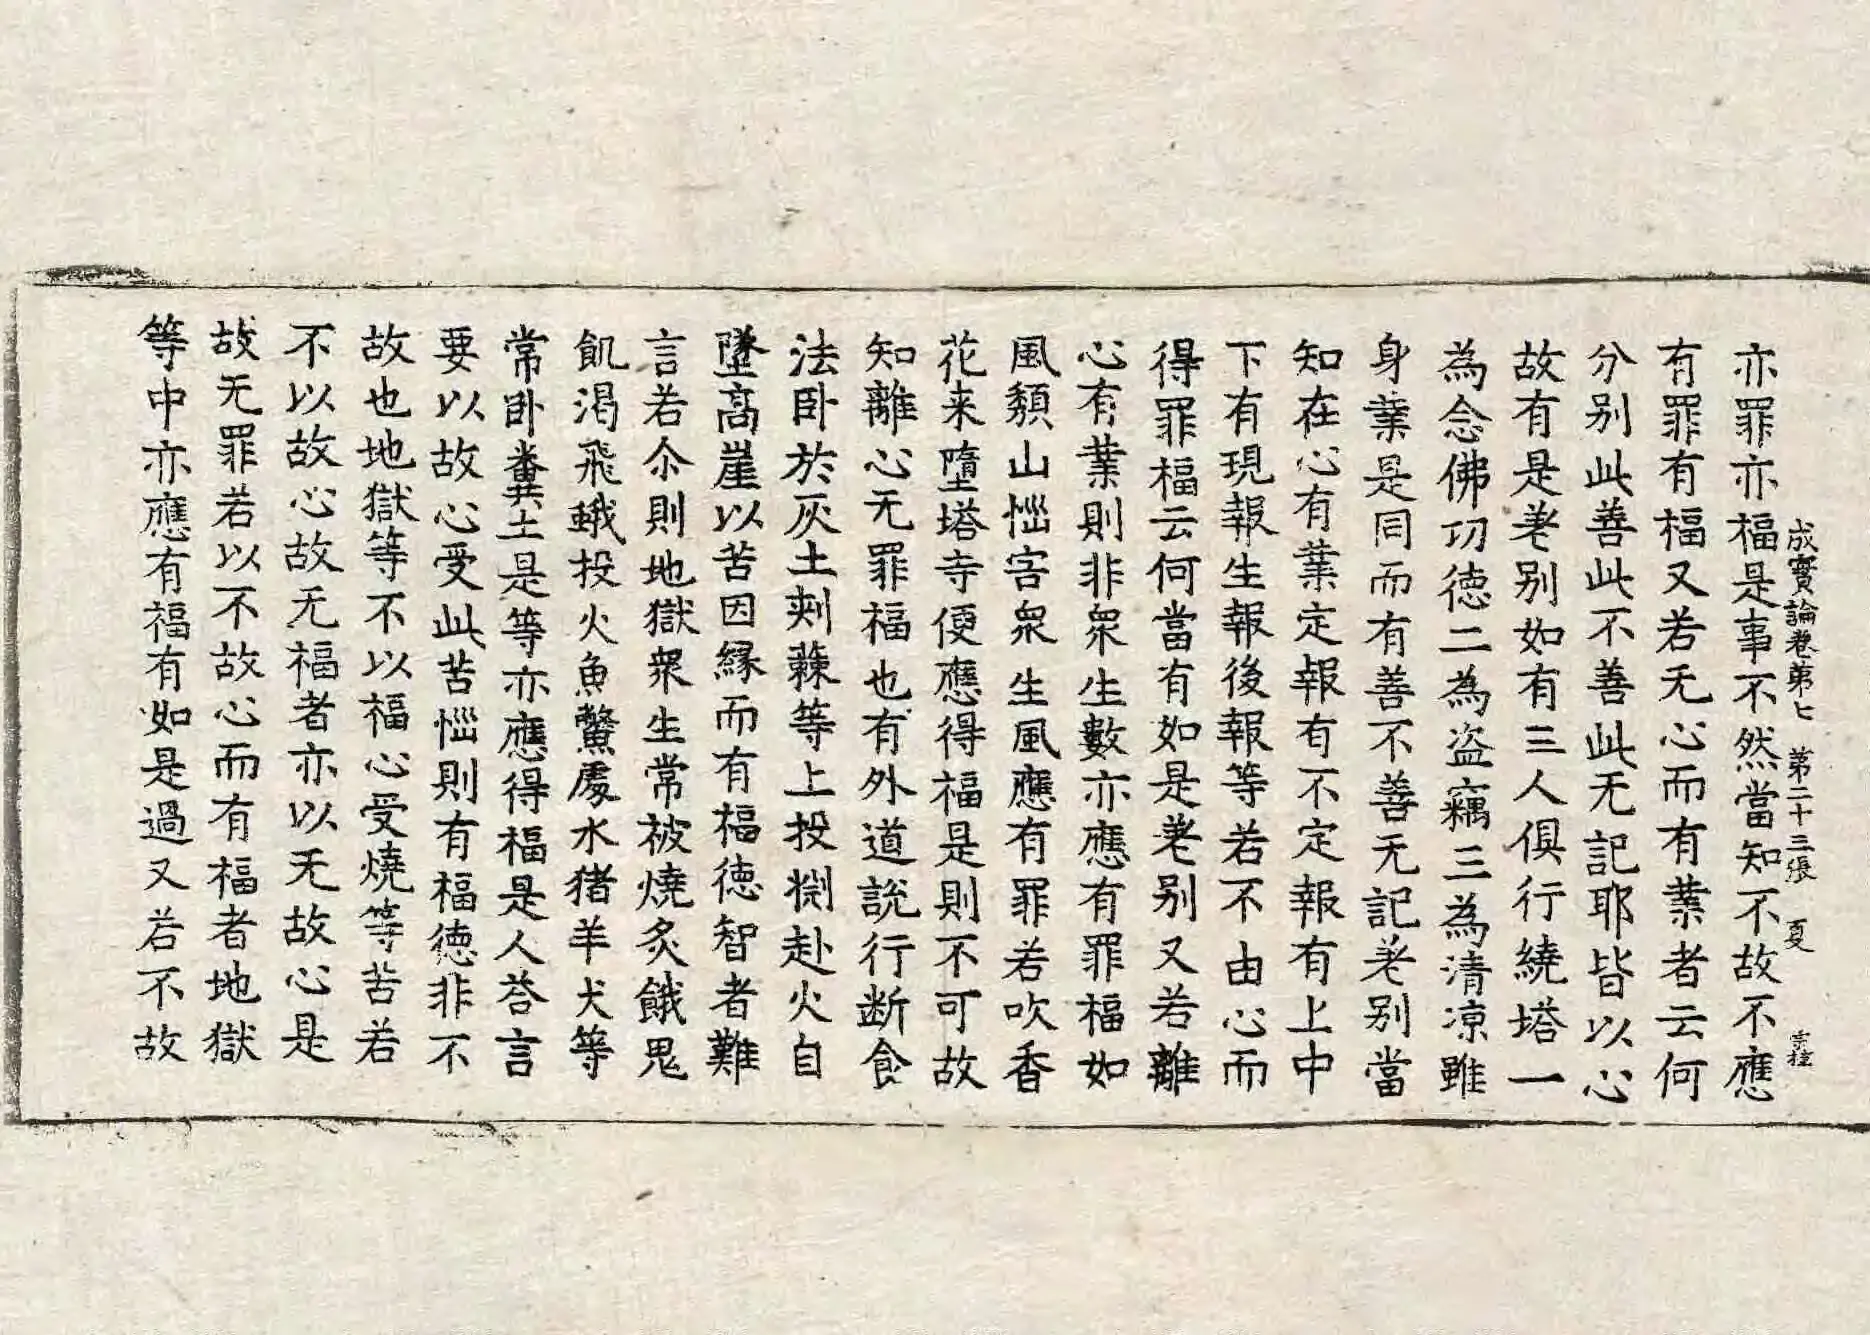 成實論卷第七　第二十三張　夏
亦罪亦福是事不然當知不故不應
有罪有福又若无心而有業者云何
分别此善此不善此无記耶皆以心
故有是差别如有三人俱行繞塔一
為念佛㓛德二為盗竊三為清凉雖
身業是同而有善不善无記差别當
知在心有業定報有不定報有上中
下有現報生報後報等若不由心而
得罪福云何當有如是差别又若離
心有業則非衆生數亦應有罪福如
風頹山惱害衆生風應有罪若吹香
花来墮塔寺便應得福是則不可故
知離心无罪福也有外道說行断食
法卧於灰土刺蕀等上投渕赴火自
墜髙崖以苦因縁而有福徳智者難
言若尒則地獄衆生常被燒炙餓鬼
飢渴飛蛾投火魚鱉處水猪羊犬等
常卧糞土是等亦應得福是人荅言
要以故心受此苦惱則有福德非不
故也地獄等不以福心受燒等苦若
不以故心故无福者亦以无故心是
故无罪若以不故心而有福者地獄
等中亦應有福有如是過又若不故